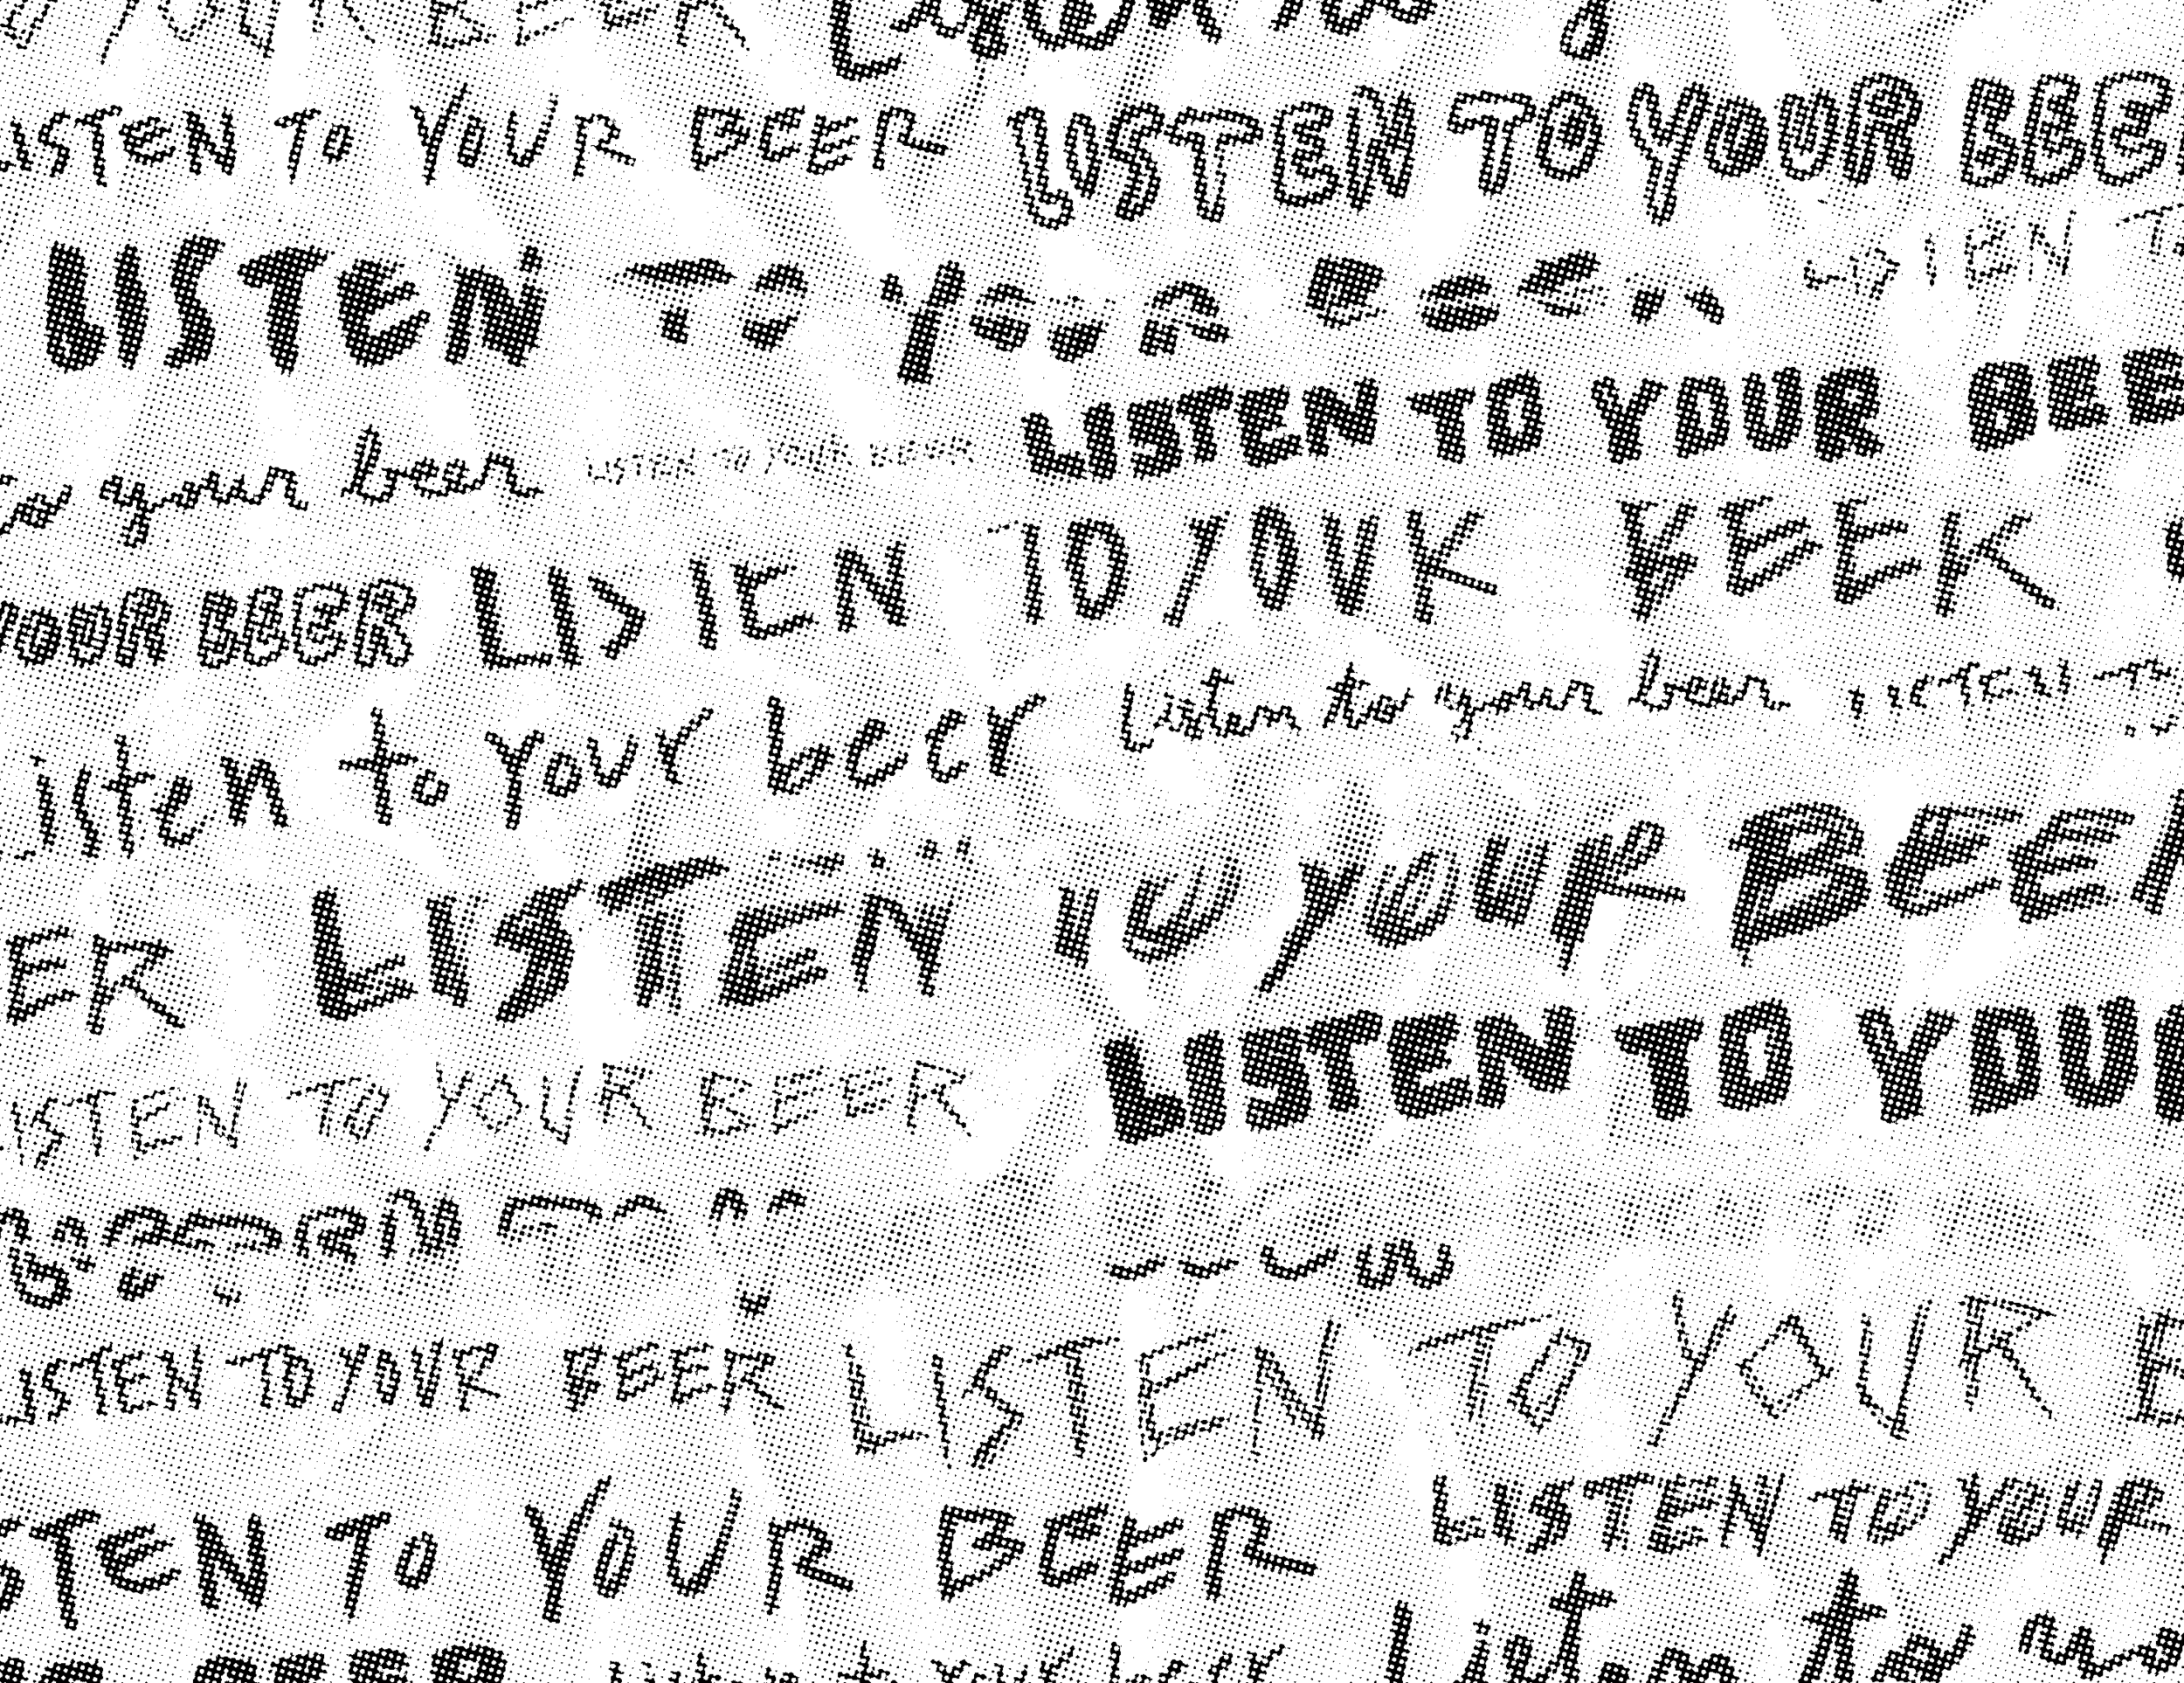 YOUR BEER Listen to y
LISTEN TO YOUR BEER LISTEN TO YOUR BEE
LISTEN TO YOUR BEER LISTEN T
LISTEN TO YOUR BEE
to your beer LISTEN TO YOUR BEER
YOUR BEER LISTEN TO YOUR BEER
listen to your beer Listen to your beer LISTEN TO
LISTEN TO YOUR BEER
ER
LISTEN TO YOU
LISTEN TO YOUR BEER
LISTEN
LISTEN TO YOUR BEER LISTEN TO YOUR BE
LISTEN TO YOUR
STEN TO YOUR BEER
BEER listen to your beer Listen to